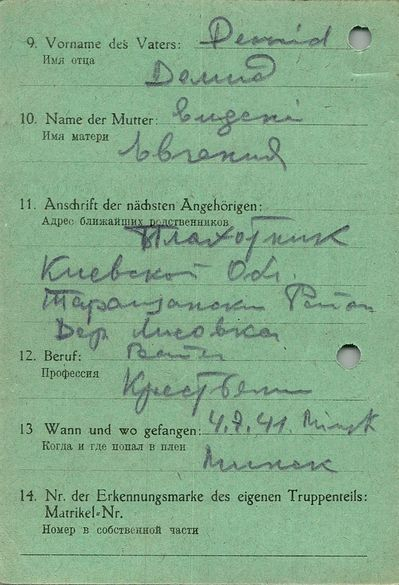 9. Vorname des Vaters: Demid
Имя отца
Демид
10. Name der Mutter: Eugeni
Имя матери
Евгения
11. Anschrift der nächsten Angehörigen:
Адрес ближайших родственников
Плахотник
Киевской Обл.
Таращански Район
Дер. Лисовка
12. Beruf:
Профессия
13 Wann und wo gefangen: 4.7.41. Minsk
Когда и где попал в плен
Минск
14. Nr. der Erkennungsmarke des eigenen Truppenteils:
Matrikel-Nr.
Номер в собственной части